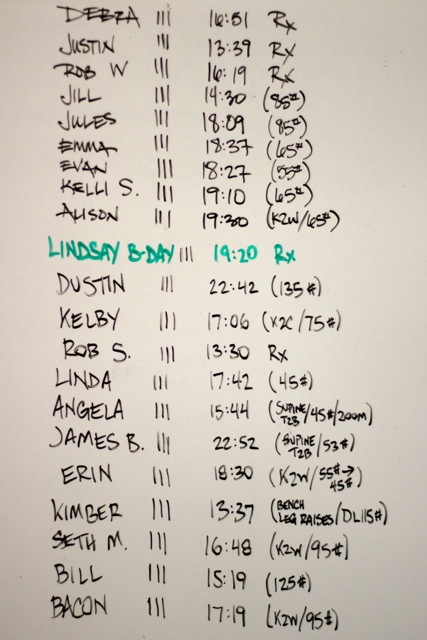 DEBRA III 16:51 Rx
JUSTIN III 13:39 Rx
ROB W III 16:19 Rx
JILL III 14:30 (85#)
JULES III 18:09 (85#)
EMMA III 18:37 (65#)
EVAN III 18:27 (55#)
KELLI S. III 19:10 (65#)
ALISON III 19:30 (K2W/65#)
LINDSAY B-DAY III 19:20 Rx
DUSTIN III 22:42 (135#)
KELBY III 17:06 (K2C/75#)
ROB S. III 13:30 Rx
LINDA III 17:42 (45#)
ANGELA III 15:44 (SUPINE T2B/45#/200m)
JAMES B. III 22:52 (SUPINE T2B/53#)
ERIN III 18:30 (K2W/55#→45#)
KIMBER III 13:37 (BENCH LEG RAISES/DL115#)
SETH M. III 16:48 (K2W/95#)
BILL III 15:19 (125#)
BACON III 17:19 (K2W/95#)